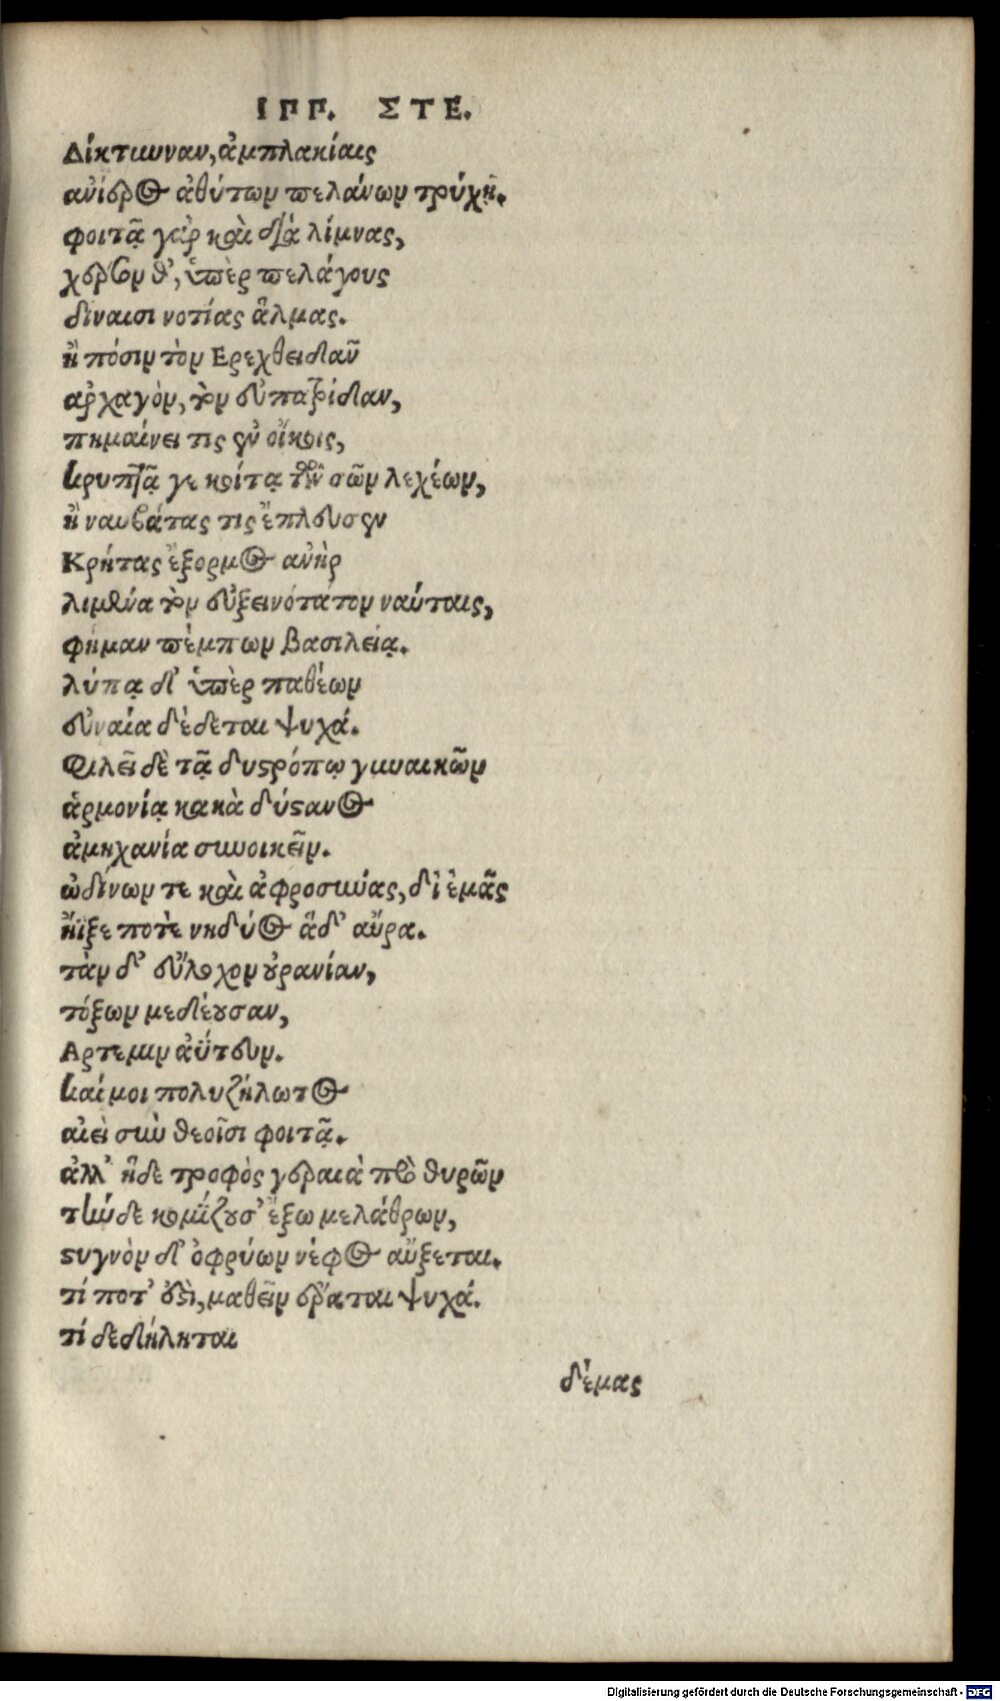 ΙΠΠ. ΣΤΕ.
Δίκτυναν, ἀμπλακίαις
ἀνίερος ἀθύτων πελάνων τρύχῃ.
φοιτᾷ γὰρ καὶ διὰ λίμνας,
χέρσον θ', ὑπὲρ πελάγους
δίναισι νοτίας ἅλμας.
ἢ πόσιν τὸν Ερεχθειδᾶν
ἀρχαγὸν, τὸν εὐπατρίδαν,
πημαίνει τις ἐν οἴκοις,
κρυπτᾷ γε κοίτᾳ τῶν σῶν λεχέων,
ἢ ναυβάτας τις ἔπλευσεν
Κρήτας ἔξορμος ἀνὴρ
λιμένα τὸν εὐξεινότατον ναύταις,
φήμαν πέμπων βασιλείᾳ.
λύπᾳ δ' ὑπὲρ παθέων
εὐναία δέδεται ψυχά.
Φιλεῖ δὲ τᾷ δυςρόπῳ γυναικῶν
ἁρμονίᾳ κακὰ δύςανος
ἀμηχανία συνοικεῖν.
ὠδίνων τε καὶ ἀφροσύνας, δι' ἐμᾶς
ἤϊξε ποτὲ νηδύος ἅδ' αὔρα.
τὰν δ' εὔλοχον οὐρανίαν,
τόξων μεδέουσαν,
Αρτεμιν ἀΰτευν.
καί μοι πολυζήλωτος
αἰεὶ σὺν θεοῖσι φοιτᾷ.
ἀλλ' ἥδε τροφὸς γεραιὰ πρὸ θυρῶν
τήνδε κομίζουσ' ἔξω μελάθρων,
στυγνὸν δ' ὀφρύων νέφος αὔξεται.
τί ποτ' ἐστὶ, μαθεῖν ἔραται ψυχά.
τί δεδήληται
δέμας
Digitalisierung gefördert durch die Deutsche Forschungsgemeinschaft - DFG